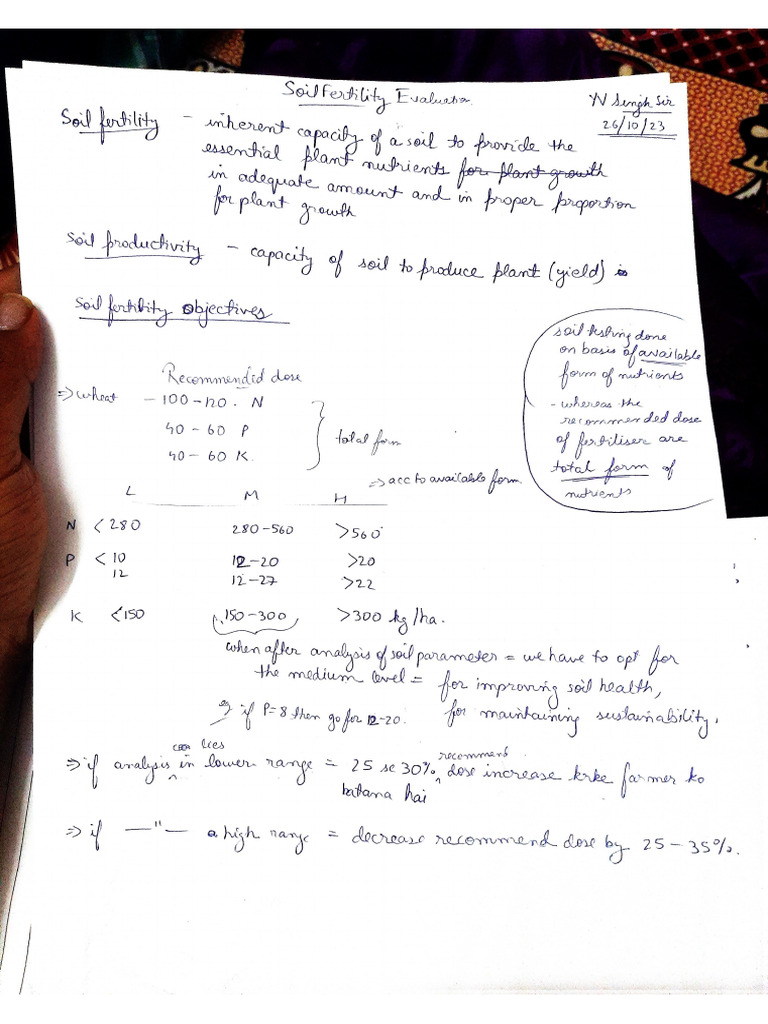 Soil Fertility Evaluation
YV Singh Sir
26/10/23
Soil fertility - inherent capacity of a soil to provide the
essential plant nutrients for plant growth
in adequate amount and in proper proportion
for plant growth
Soil productivity - capacity of soil to produce plant (yield)
Soil fertility Objectives
soil testing done
on basis of available
form of nutrients
- whereas the
recommended dose
of fertiliser are
total form of
nutrients
Recommended dose
⇒ wheat - 100-120. N
40 - 60 P
40 - 60 K.
total form
⇒ acc to available form
L M H
N <280 280-560 >560
P <10 12-20 >20
12 12-27 >22
K <150 150-300 >300 kg/ha.
when after analysis of soil parameter = we have to opt for
the medium level = for improving soil health,
for maintaining sustainability.
eg if P=8 then go for 12-20.
⇒ if analysis lies in lower range = 25 se 30% recommend dose increase krke farmer ko
batana hai
⇒ if —"— a high range = decrease recommend dose by 25 - 35%.